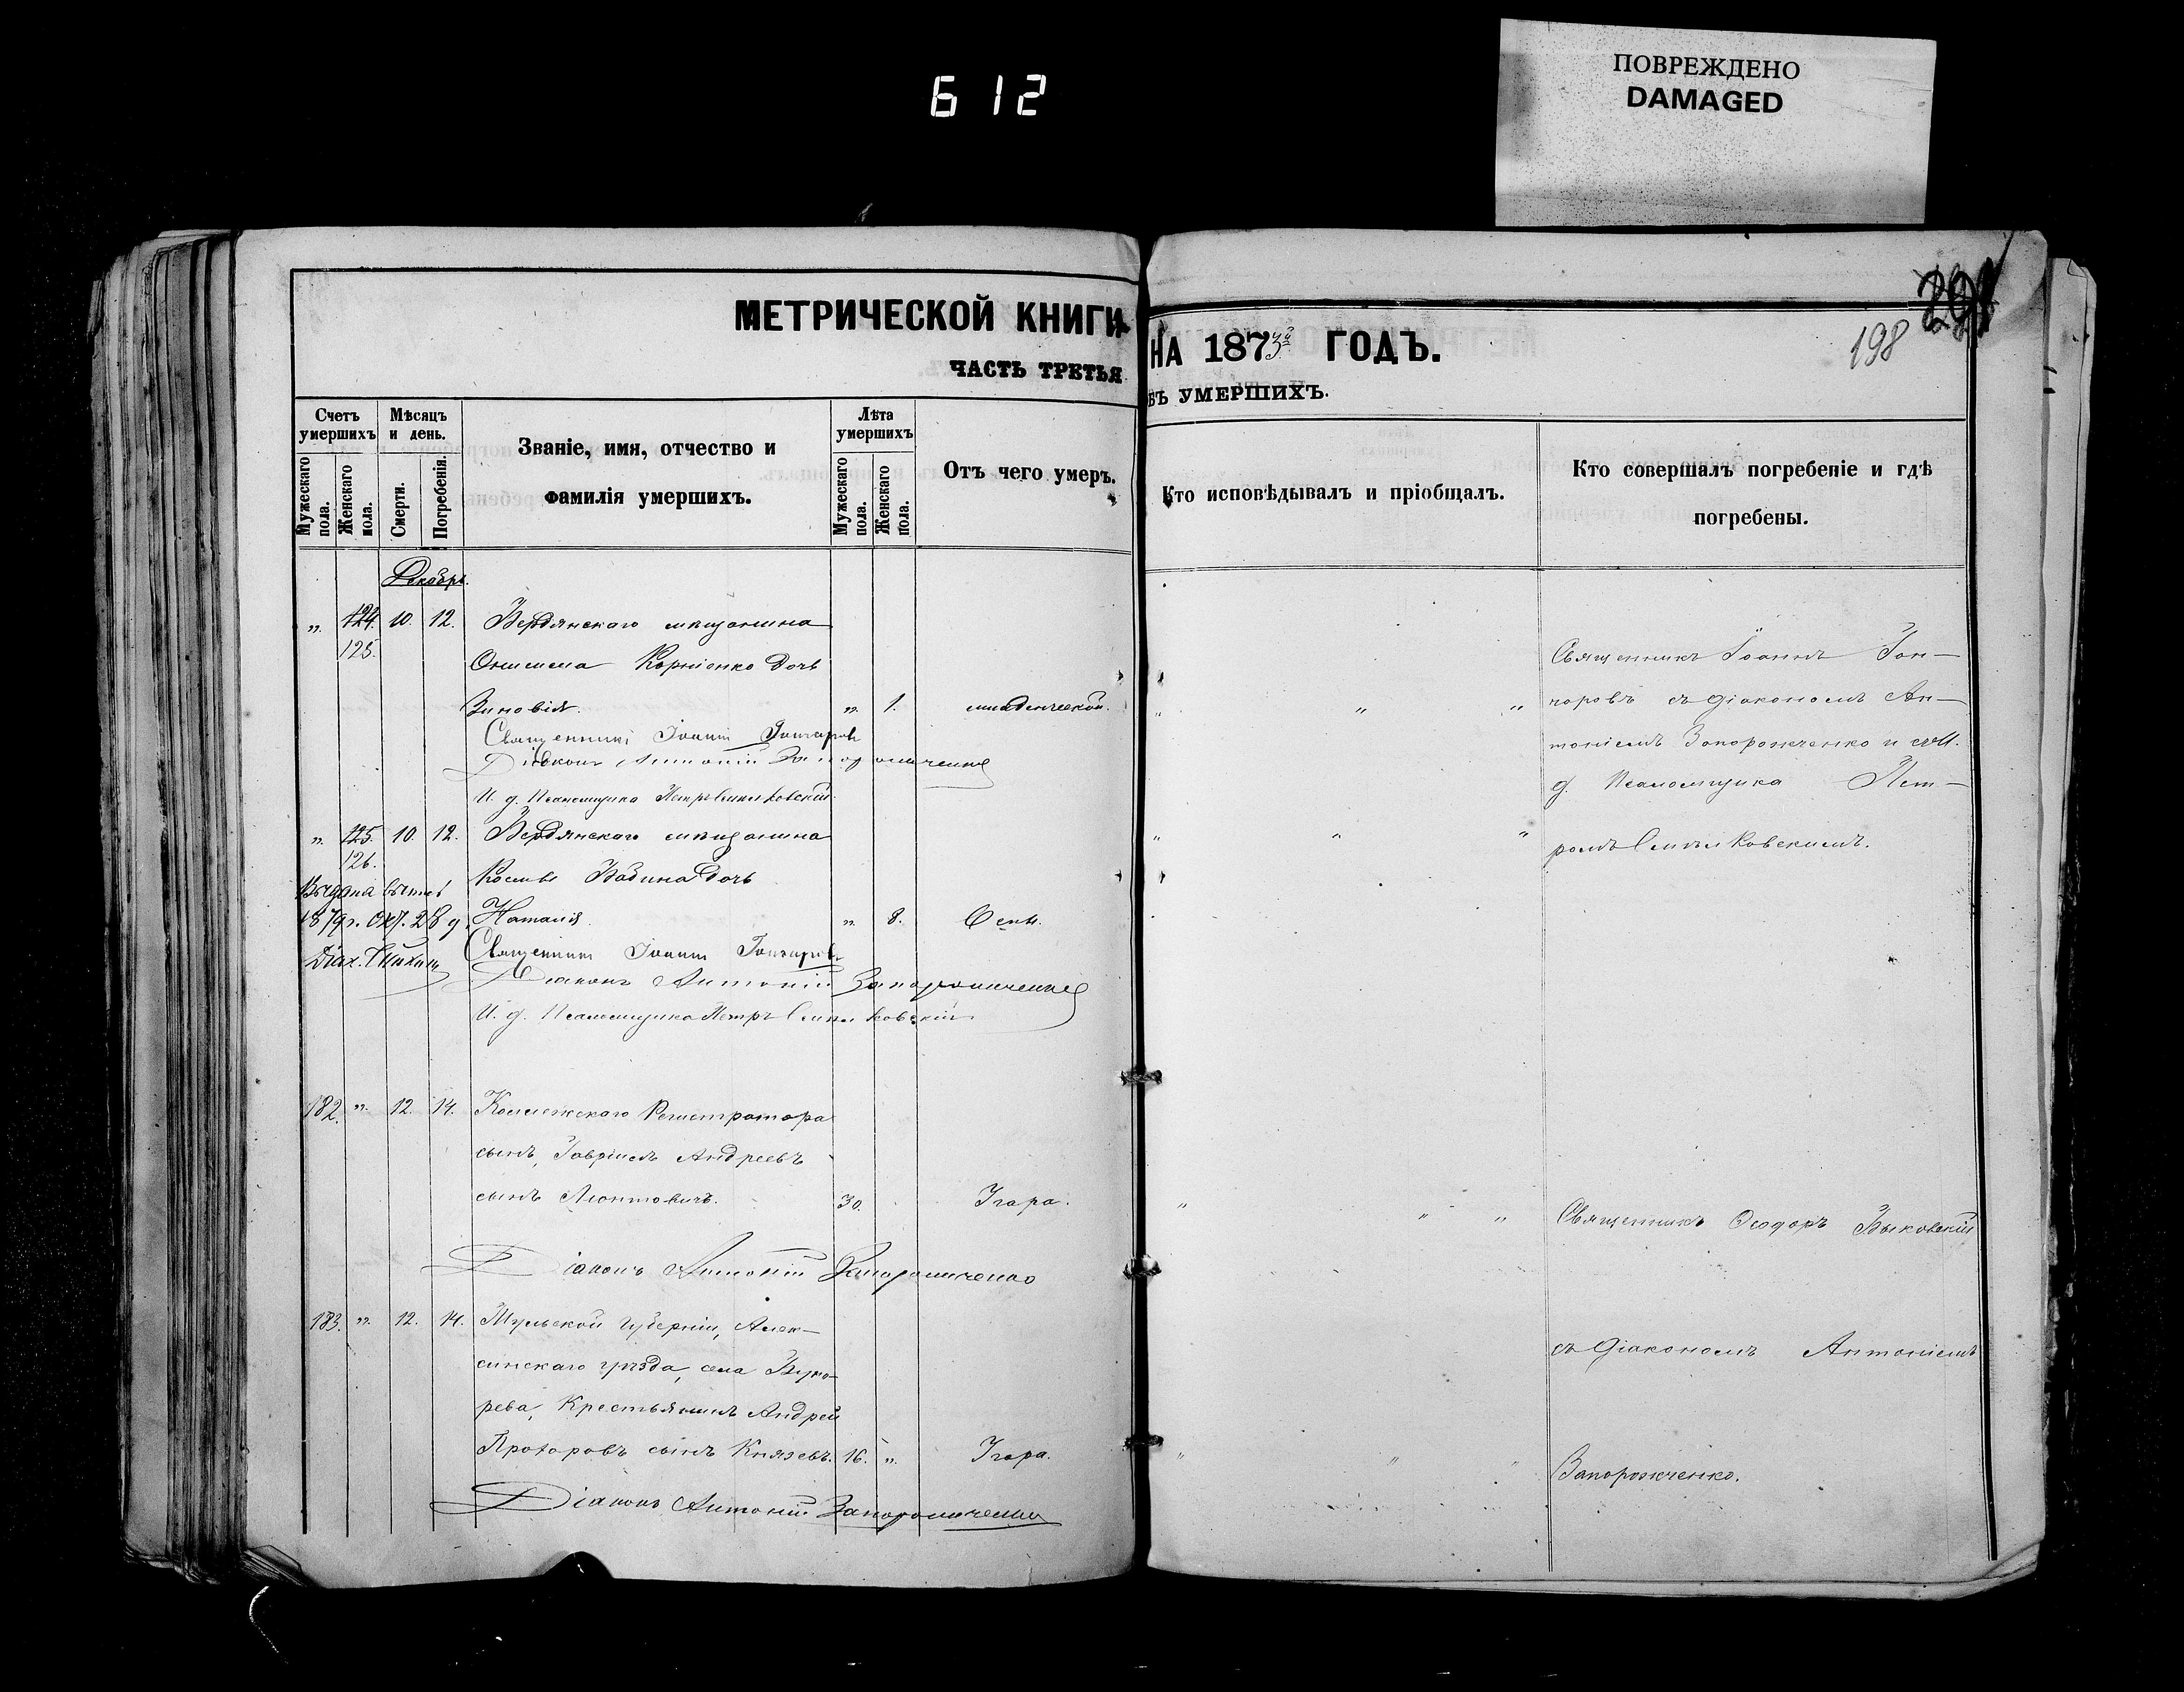 612
ПОВРЕЖДЕНО
DAMAGED
МЕТРИЧЕСКОЙ КНИГИ
НА 1873й ГОДЪ.
198
ЧАСТЬ ТРЕТЬЯ
ВЪ УМЕРШИХЪ.
Счетъ умершихъ
Мужескаго пола.
Женскаго пола.
Мѣсяцъ и день.
Смерти.
Погребенія.
Званіе, имя, отчество и
фамилія умершихъ.
Лѣта умершихъ
Мужескаго пола.
Женскаго пола.
Отъ чего умеръ.
Кто исповѣдывалъ и пріобщалъ.
Кто совершалъ погребеніе и гдѣ
погребены.
Декабрь.
„ 124. 10. 12. Бердянскаго мѣщанина
125.
Онисима Корніенко дочь
Зиновія. „ 1. младенческой. „ „ „
Священникъ Іоаннъ Гончаровъ
Діаконъ Антоній Запорожченко
И. д. Псаломщика Петръ
„ 125. 10. 12. Бердянскаго мѣщанина „ „ „
126.
Космы Бабина дочь
Выдана
1879 г. Окт. 28 д.
Наталія. „ 8. Оспы.
Священникъ Іоаннъ Гончаровъ
Діаконъ Антоній Запорожченко
И. д. Псаломщика Петръ
Священникъ Іоаннъ Гон—
чаровъ съ діакономъ Ан—
тоніемъ Запорожченко и
д. Псаломщика Пет—
ромъ
182. „ 12. 14. Коллежскаго Регистратора
сынъ, Гавріилъ Андреевъ
сынъ Леонтовичъ. 30. Угара. „ „ „
Діаконъ Антоній Запорожченко
183. „ 12. 14. Тульской губерніи, Алек—
синскаго уѣзда, села
рева, Крестьянинъ Андрей
Прохоровъ сынъ Князевъ. 16. „ Угара. „ „ „
Діаконъ Антоній Запорожченко
Священникъ Ѳеодоръ Быковскій
съ діакономъ Антоніемъ
Запорожченко.